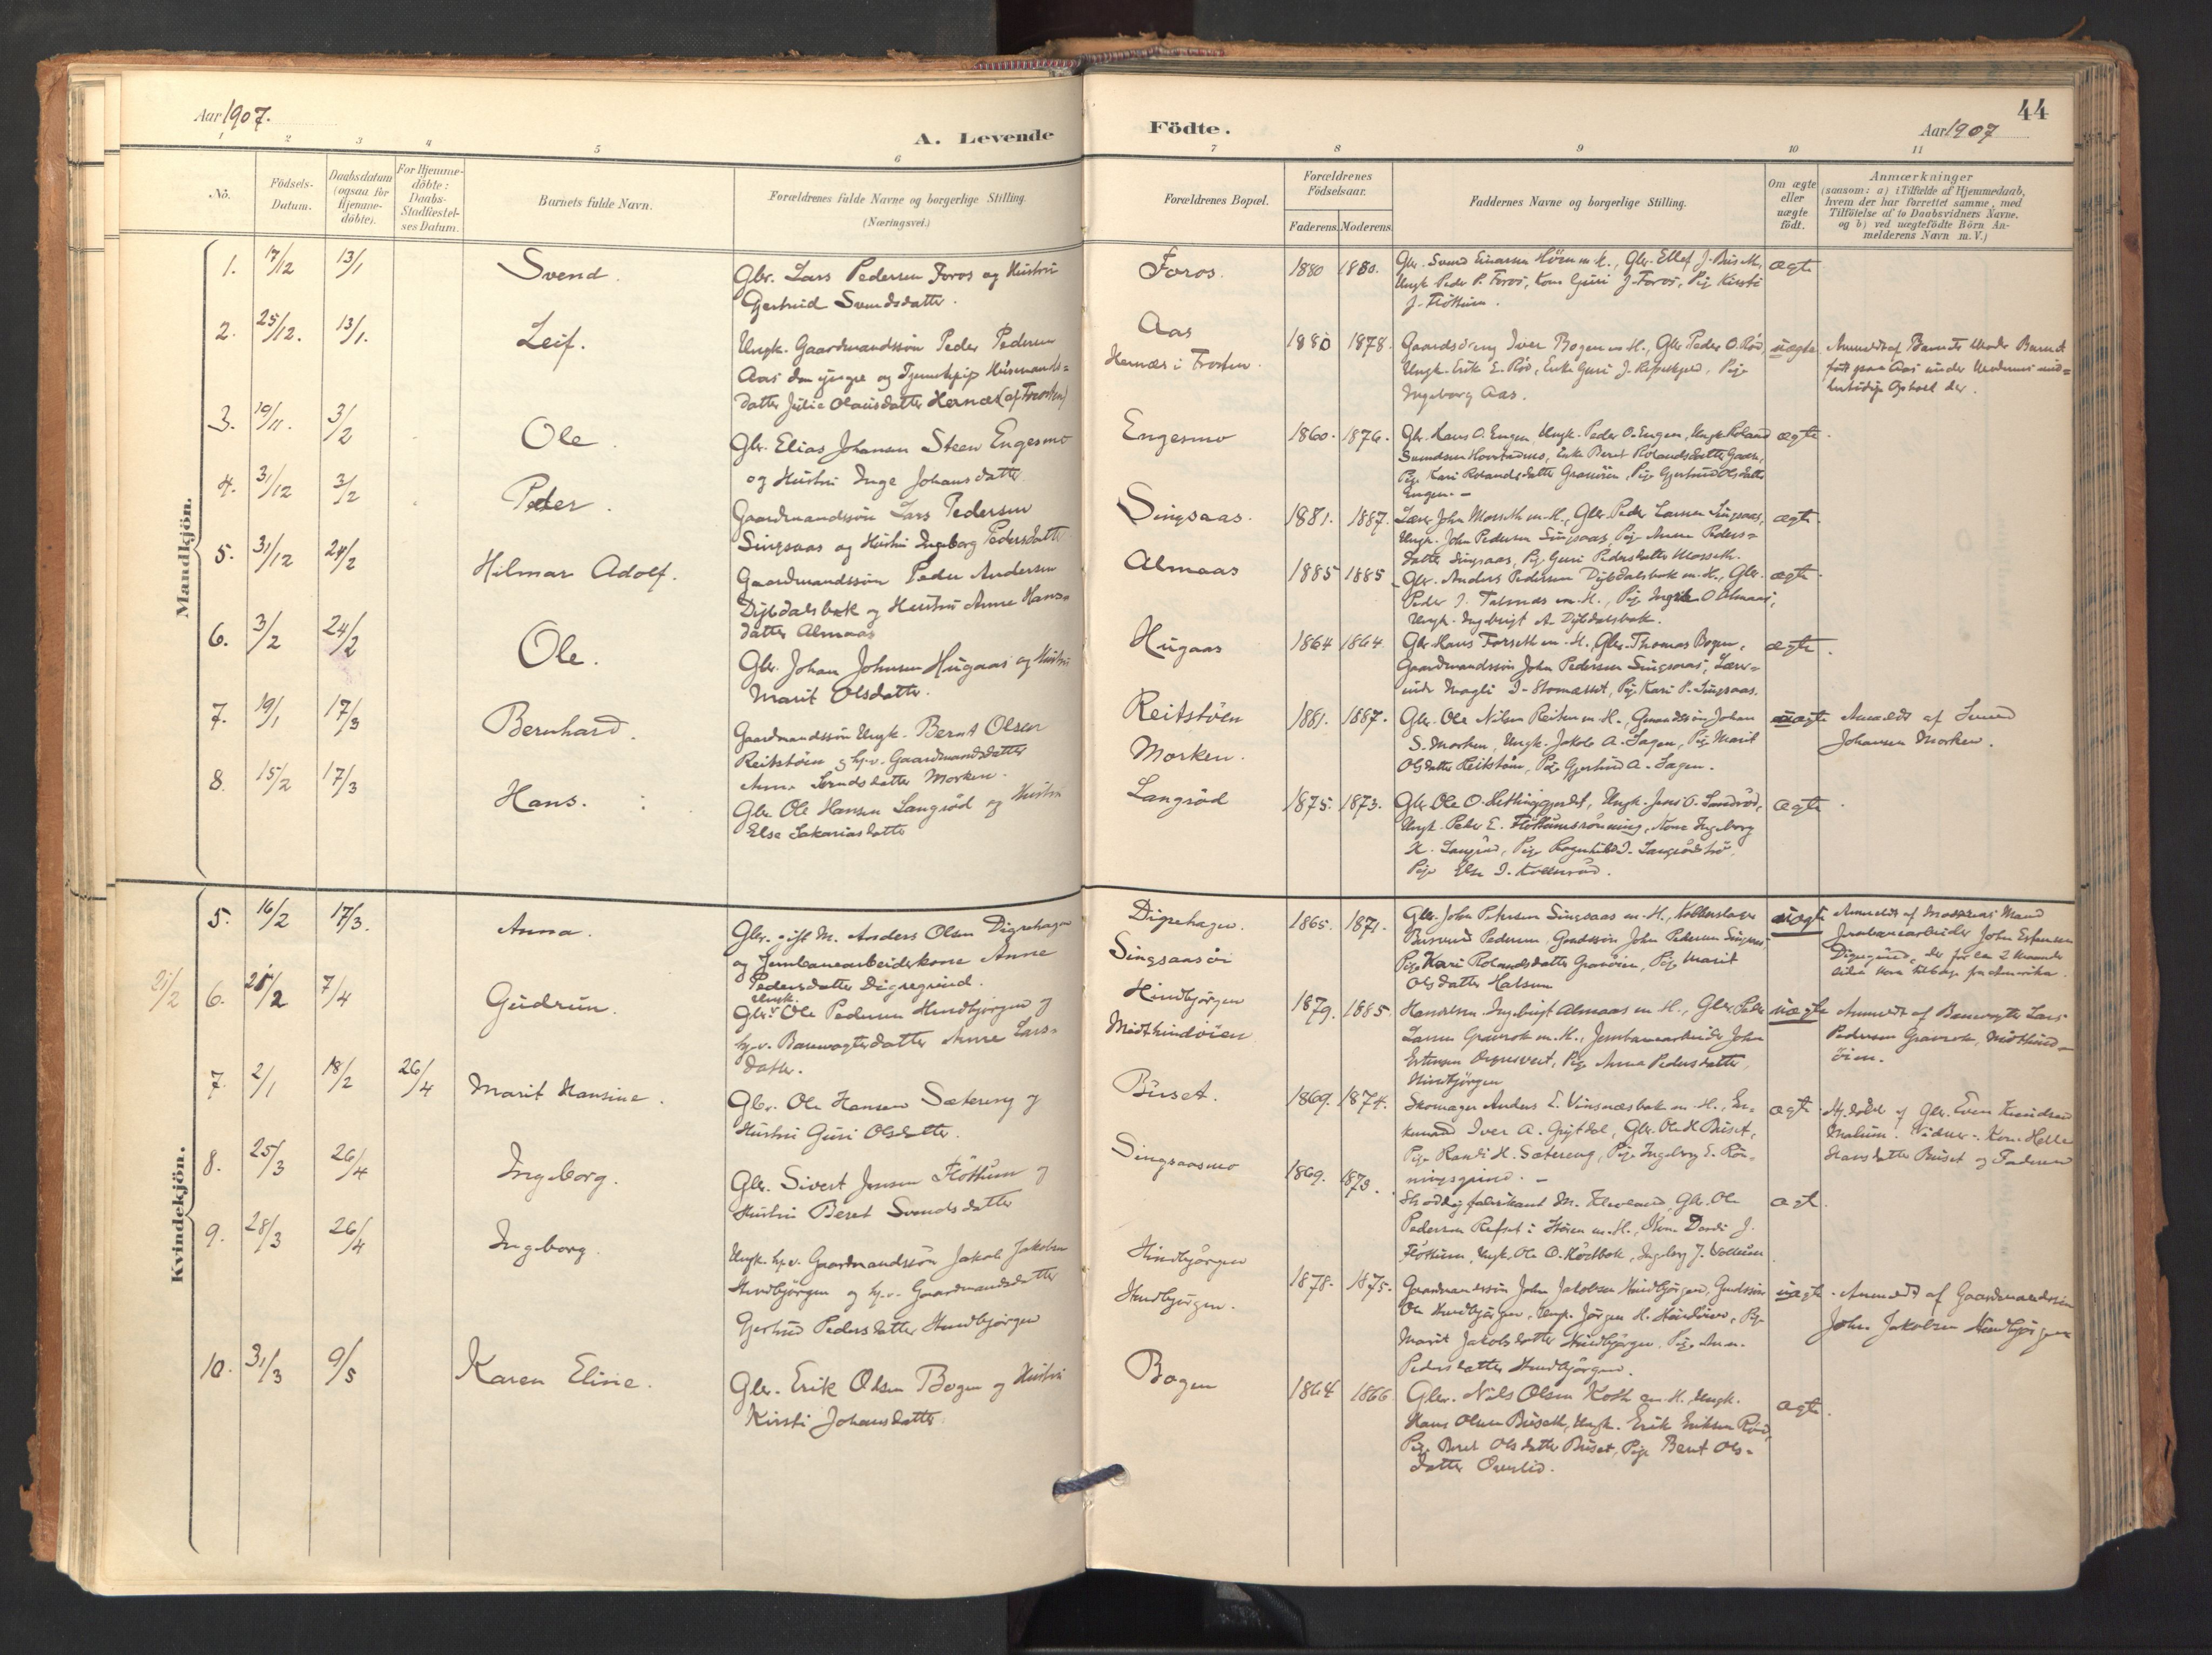 Aar 1907.
A. Levende
Födte.
Aar 1907
44
1 2 3 4 5 6 7 8 9 10 11
No.
Födsels-
Datum.
Daabsdatum
(ogsaa for
Hjemme-
döbte).
For Hjemme-
döbte:
Daabs-
Stadfæstel-
ses Datum.
Barnets fulde Navn.
Forældrenes fulde Navne og borgerlige Stilling.
(Næringsvei.)
Forældrenes Bopæl.
Forældrenes
Födselsaar.
Faderens.
Moderens.
Faddernes Navne og borgerlige Stilling.
Om ægte
eller
uægte
födt.
Anmærkninger
(saasom: a) i Tilfælde af Hjemmedaab,
hvem der har forrettet samme, med
Tilföielse af to Daabsvidners Navne.
og b) ved uægtefödte Börn An-
melderens Navn m. V.)
Mandkjön.
1. 17/12 13/1 Svend.
Gbr. Lars Pedersen Foros og Hustru
Gjertrud Svendsdatter.
Foros. 1880 1880.
Gbr. Svend Einarsen Hörn m. H., Gbr. Ellef J. Buseth,
Ungk. Peder P. Foros, Kone Guri J. Foros, Pige Kirsti
J. Flöttum.
ægte
2. 25/12. 13/1. Leif.
Ungk. Gaardmandssön Peder Pedersen
Aas den yngre og Tjenestepige Husmands-
datter Julie Olausdatter Hernæs (af Frosten)
Aas
Hernæs i Frosten.
1880 1878.
Gaardsdreng Iver Bogen m. H., Gbr. Peder O. Röd
Ungk. Erik E. Röd, Enke Guri J. Pige
Ingeborg Aas.
uægte
Anmeldt af Barnets Moder Barnet
født paa Aas under Moderens mid-
lertidige Ophold der.
3. 19/11. 3/2 Ole.
Gbr. Elias Johansen Steen Engesmo
og Hustru Inge Johansdatter.
Engesmo 1860. 1876.
Gbr. Hans O. Engen, Ungk. Peder O. Engen, Ungk. Roland
Svendsen Enke Beret Rolandsdatter
Pige Kari Rolandsdatter Granöien, Pige Gjertrud Olsdatter
Engen.
ægte.
4. 31/12 3/2 Peder.
Gaardmandssön Lars Pedersen
Singsaas og Hustru Ingeborg Pedersdatter
Singsaas. 1881. 1887.
Lærer John Moseth m. H., Gbr. Peder Larsen Singsaas,
Ungk. John Pedersen Singsaas, Pige Anne Peders-
datter Singsaas, Pig. Guri Pedersdatter Moseth.
ægte.
5. 31/12 24/2 Hilmar Adolf.
Gaardmandssön Peder Andersen
Dybdalsbak og Hustru Anne Hans-
datter Almaas
Almaas 1885 1885
Gbr. Anders Pedersen Dybdalsbak m. H., Gbr.
Peder J. m. H., Pige Ingrid O. Almaas,
Ungk. Ingebrigt A. Dybdalsbak.
ægte.
6. 3/2 24/2 Ole.
Gbr. Johan Johnsen Hugaas og Hustru
Marit Olsdatter.
Hugaas 1864 1864
Gbr. Hans Forseth m. H., Gbr. Thomas Bogen,
Gaardmandssön John Pedersen Singsaas, Lærer-
inde Magli J. Pige Kari P. Singsaas.
ægte.
7. 19/1 17/3 Bernhard.
Gaardmandssön Ungk. Bernt Olsen
Reitstöen og h. v. Gaardmandsdatter
Anne Svendsdatter Morken.
Reitstöen
Morken.
1881. 1887.
Gbr. Ole Nilsen Reiten m. H., Johan
S. Morken, Ungk. Jakob A. Sagen, Pig. Marit
Olsdatter Reitstöen, Pige Gjertrud A. Sagen.
uægte
Anmeldt af Svend
Johansen Morken.
8. 15/2 17/3 Hans.
Gbr. Ole Hansen Langröd og Hustru
Else Sakariasdatter
Langröd 1875. 1873.
Gbr. Ole O. Ungk. Jens O.
Ungk. Peder E. Flöttumsrönning, Kone Ingeborg
H. Langröd, Pige Ragnhild J.
Pige Else J.
ægte.
Kvindekjön.
5. 16/2 17/3. Anna.
Gbr. gift M. Anders Olsen Digrehagen
og Jernbanearbeiderkone Anne
Pedersdatter Digregrind.
Digrehagen.
Singsaasöi
1865. 1871.
Gbr. John Petersen Singsaas m. H.,
Pedersen, John Pedersen Singsaas
Pige Kari Rolandsdatter Granöien, Pig. Marit
Olsdatter
uægte
Anmeldt af Moderens Mand
Jernbanearbeider John Estensen
Digregrind, der for ca 2 Maaneder
siden kom tilbage fra Amerika.
21/2 6. 21/2 7/4 Gudrun.
Ungk.
Gbr. Ole Pedersen Hindbjörgen og
h. v. Banevogterdatter Anne Lars-
datter.
Hindbjörgen
Midthindöien
1879. 1885.
Ingebrigt Almaas m. H., Gbr. Peder
Larsen m. H., Jernbanearbeider John
Estensen Pige Anna Pedersdatter
Hindbjörgen
uægte
Anmeldt af Banevogter Lars
Pedersen Midthind-
öien.
7. 2/1 18/2 26/4 Marit Hansine.
Gbr. Ole Hansen Sætereng og
Hustru Guri Olsdatter.
Buset. 1869. 1874.
Skomager Anders E. Vinsnesbak m. H., En-
kemand Iver A. Gbr. Ole H. Buset,
Pige Randi H. Sætereng, Pige Ingeborg E. Rön-
ningsgrind.
ægte.
Hj. döbt af Gbr. Even Knudsen
Kone Helle
Hansdatter Buset og Faderen
8. 25/3 26/4 Ingeborg.
Gbr. Sivert Jensen Flöttum og
Hustru Beret Svendsdatter
Singsaasmo 1869. 1873.
M. Kleveland, Gbr. Ole
Pedersen m. H., Kone J.
Flöttum, Ungk. Ole O. Ingeborg J.
ægt.
9. 28/3 26/4 Ingeborg.
Ungk. h. v. Gaardmandssön Jakob Jakobsen
Hindbjörgen og h. v. Gaardmandsdatter
Gjertrud Pedersdatter Hindbjörgen
Hindbjörgen
Hindbjörgen.
1878. 1875.
Gaardmandssön John Jakobsen Hindbjörgen,
Ole Hindbjörgen, Ungk. Jörgen H. Pige
Marit Jakobsdatter Hindbjörgen, Pige Anne
Pedersdatter Hindbjörgen.
uægte.
Anmeldt af Gaardmandssön
John Jakobsen Hindbjörgen
10. 31/3 9/5 Karen Eline.
Gbr. Erik Olsen Bogen og Hustru
Kirsti Johansdatter.
Bogen 1864 1866
Gbr. Nils Olsen Koth m. H., Ungk.
Hans Olsen Buseth, Ungk. Erik Eriksen Röd,
Pige Beret Olsdatter Buset, Pige Berit Ols-
datter
ægte.